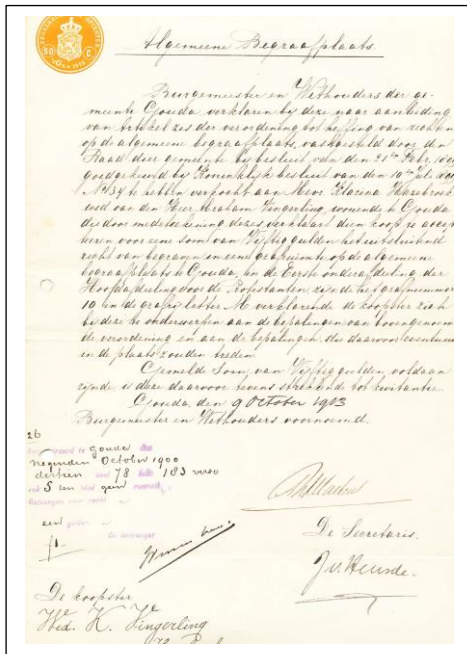 50 C
Algemeene Begraafplaats.
Burgemeester en Wethouders der ge-
meente Gouda verklaren bij deze naar aanleiding
van Artikel zes der verordening tot heffing van rechten
op de algemeene begraafplaats, vastgesteld door den
Raad dier gemeente bij besluit van den 21sten Febr.
goedgekeurd bij Koninklijk besluit van den 10den
No 34 te hebben verkocht aan Mevr. Klazina Hazebroek
wed van den Heer Abraham Vingerling, wonende te Gouda
die door medeteekening dezes, verklaart dien koop te accep
teeren voor eene som van Vijftig gulden het uitsluitend
recht van begraven in eene grafruimte op de algemeene
begraafplaats te Gouda, in de Eerste onderafdeeling der
Hoofdafdeeling voor de Protestanten zijnde het grafnummer
10 in de grafrij letter M verklarende de koopster zich
bij deze te onderwerpen aan de bepalingen van bovengenoem
de verordening en aan de bepalingen, die daarvoor
in de plaats zouden treden.
Gemelde Som, van Vijftig gulden, voldaan
zijnde, is deze daarvoor tevens strekkend tot kwitantie.
Gouda, den 9 October 1903
Burgemeester en Wethouders voornoemd.
26
te gouda den
negenden October 1900
dertien deel 78 183 verso
vak 5 een blad geen
Ontvangen voor recht
een gulden
f1-
De Ontvanger
De Secretaris.
De koopster
Wed. K. Vingerling